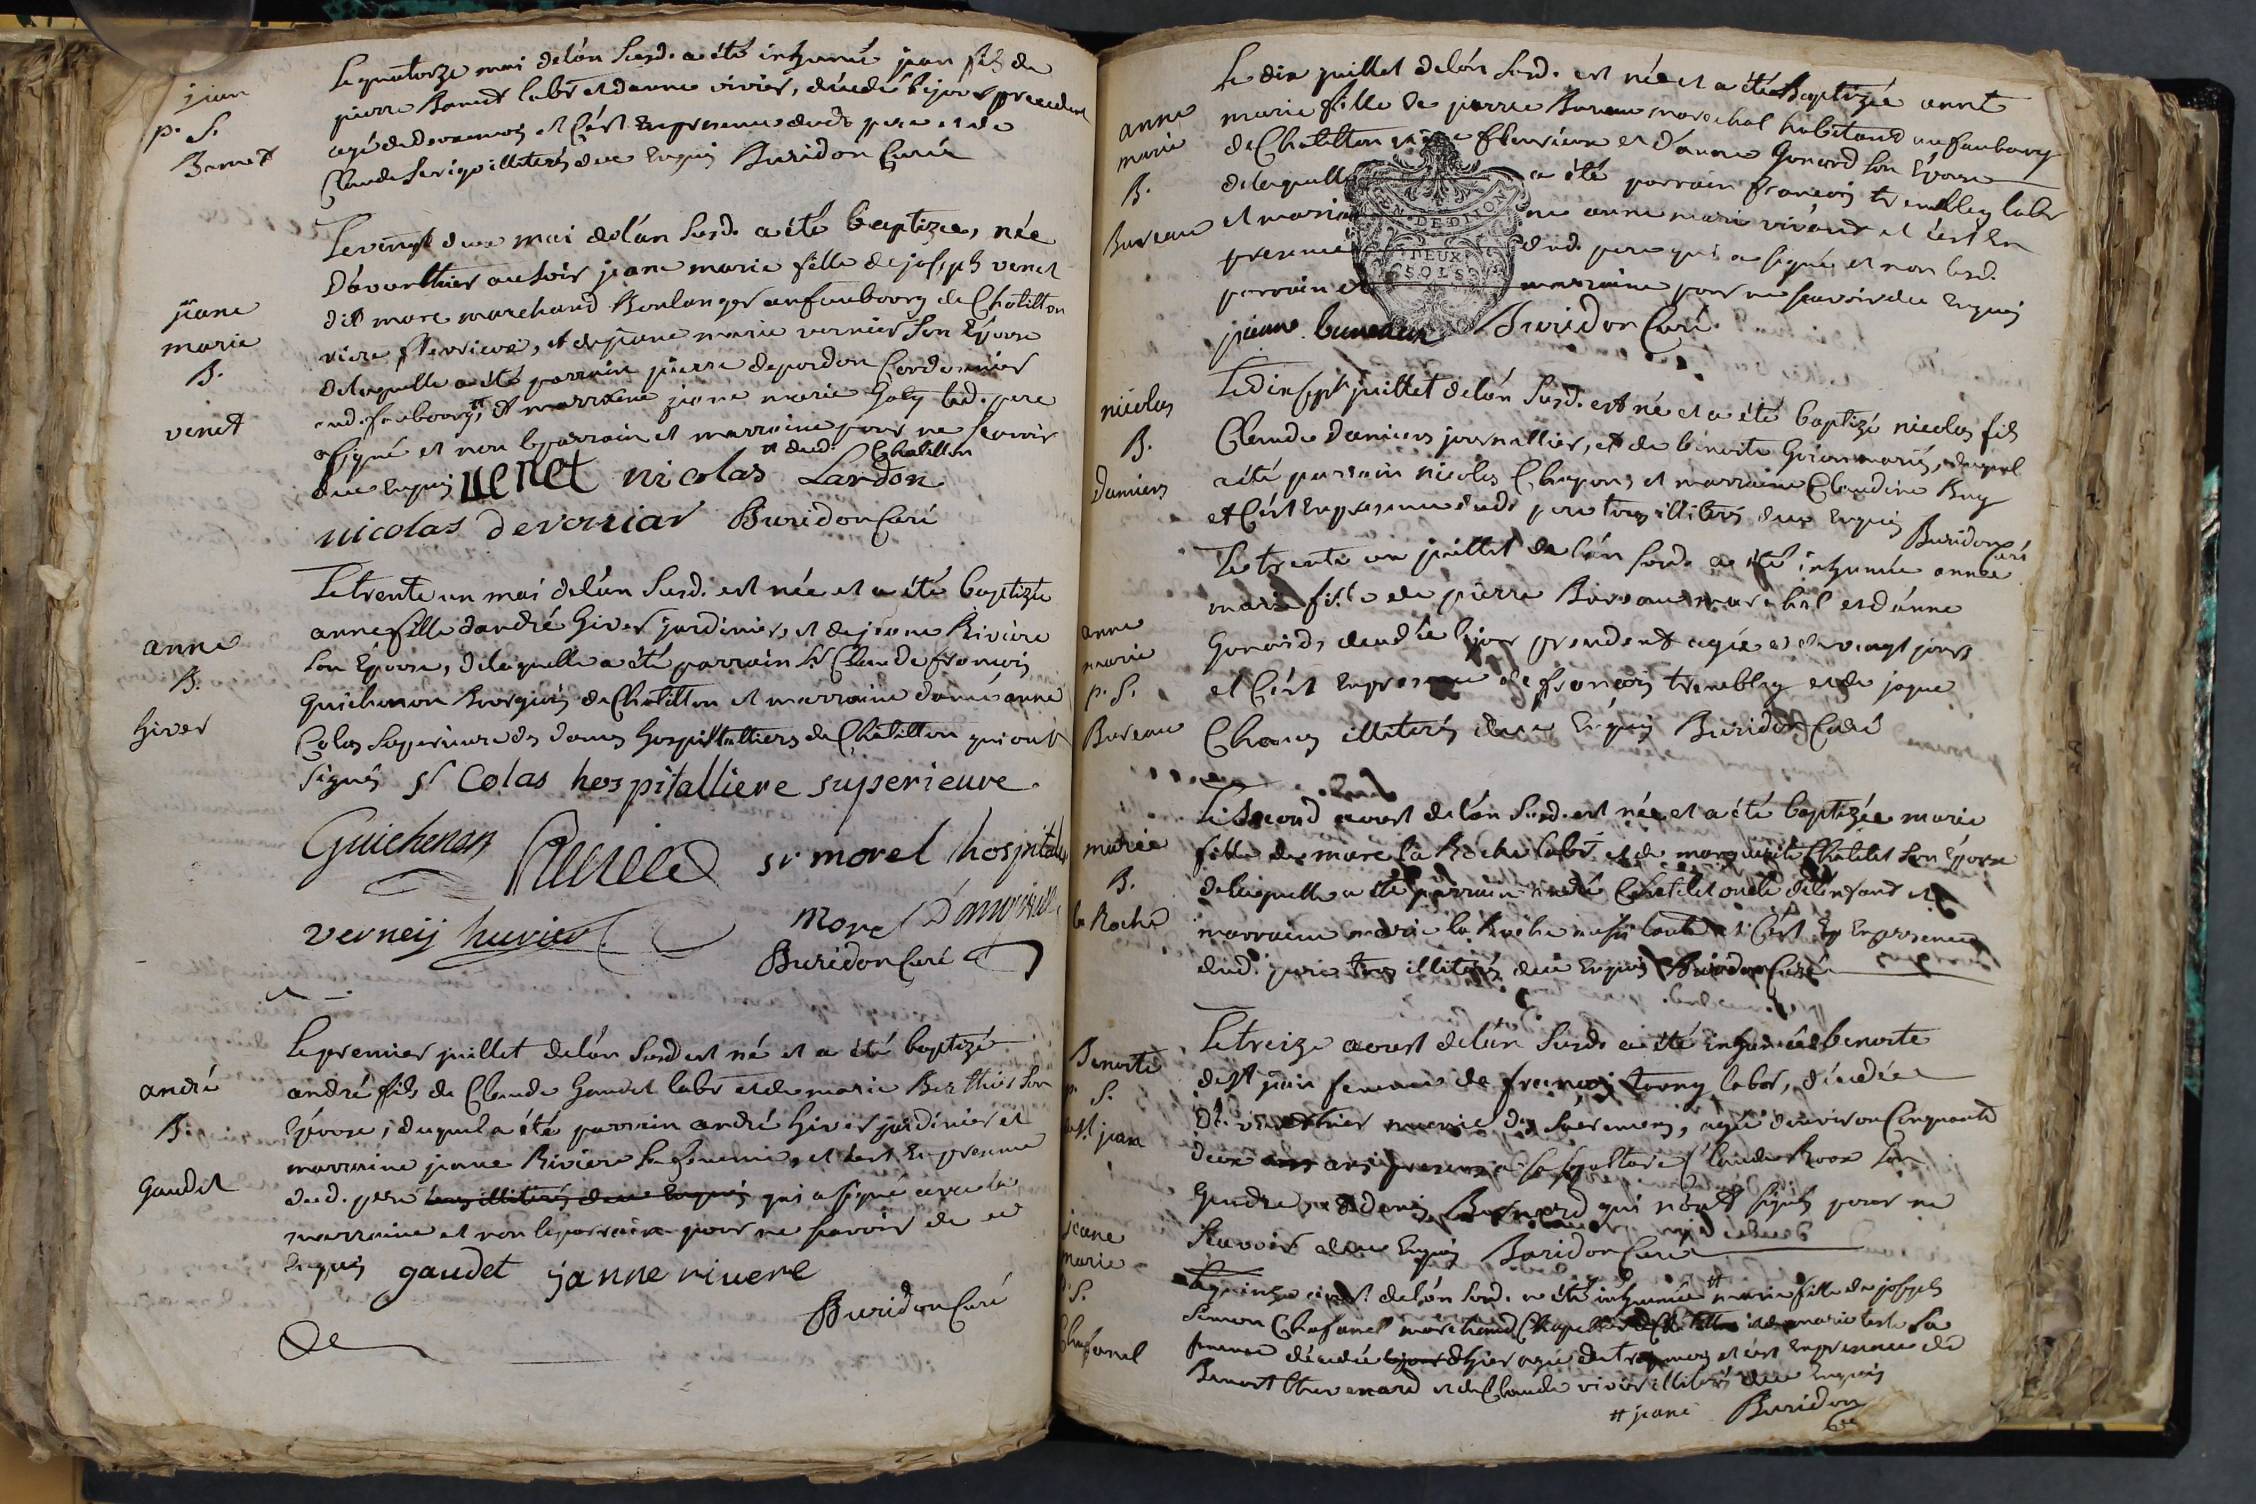 jean
p. S.
Benet
Le quatorze mai de lán Susd. a été inhumé jean fils de
pierre Benet labr et danne vivier, décédé le jour précedent
agé de deux mois et cést en presence dud. pere et de
Claude illiterés de ce enquis Buridon Curé
jeane
marie
B.
venet
Le vingt deux mai de lán Susd. a été baptizée, née
dávanthier au soir jeane marie fille de joseph venet
dit marc marchand Boulanger au faubourg de Chatillon
riere fleurieux, et de jeane marie vernier son Epouse
de laquelle a été parrain pierre depordon Cordonnier
aud. faubourg, et marraine jeane marie Goly led. pere
a signé et non le parrain et marraine pour ne scavoir
# dud. Chatillon
de ce enquis venet nicolas Lardon
nicolas devouriar Buridon Curé
anne
B.
hiver
Le trente un mai de lán Susd. est née et a été baptizée
anne fille dandré hiver jardinier, et de jeane Riviere
son Epouse, de laquelle a été parrain Sr Claude francois
Guichenon Bourgeois de Chatillon et marraine dame anne
Colas Superieure des dames hospitallieres de Chatillon qui ont
signés Sr Colas hospitalliere superieure.
Guichenon sr morel hospitaliere
verneij huvier morel
Buridon Curé
andré
B.
Gaudet
Le premier juillet de lán Susd est né et a été baptizé
andré fils de Claude Gaudet labr et de marie Berthier son
Epouse, duquel a été parrain andré hiver jardinier et
marraine jeane Riviere sa femme, et cést en presence
dud. pere tous illiterés de ce enquis qui a signé avec la
marraine et non le parrain pour ne scavoir de ce
enquis gaudet janne rivere
Buridon Curé
anne
marie
B.
Bureau
Le dix juillet de lán Susd. est née et a été Baptizée anne
marie fille de pierre Bureau marechal habitant au faubourg
de Chatillon riere fleurieux et dánne Gonard son Epouse
de laquelle a été parrain francois trembley labr
et marraine anne marie vivand et cést en
presence dud. pere qui a signé et non lesd.
parrain et marraine pour ne scavoir de ce enquis
EN. DE DIJON
DEUX
SOLS
piare bureaux Buridon Curé.
nicolas
B.
Damiens
Le dix sept juillet de lán Susd. est né et a été baptizé nicolas fils
Claude Damiens journallier, et de benoite mariés, duquel
a été parrain nicolas Chapon, et marraine Claudine Rey
et cést en presence dud. pere tous illiterés de ce enquis
Buridon
Curé
anne
marie
p. S.
Bureau
Le trente un juillet de lán Susd. a été inhumée anne
marie fille de pierre Bureau marechal et dánne
Gonard, decedée le jour precedent agée de vingt jours
et cést en presence de francois trembley et de jaque
illiterés de ce enquis Buridon Curé
marie
B.
la Roche
Le Second aoust de lán Susd. est née et a été baptizée marie
fille de marc la Roche labr et de marguerite Chatelet son Epouse
de laquelle a été parrain andré Chatelet oncle de lénfant et
marraine marie la Roche aussi tante et cést en presence
dud. pere tous illiterés de ce enquis Buridon Curé
Benoite
p. S.
de st jean
Le treize aoust de lán Susd. a été inhumée benoite
de st jean femme de francois torny labor, décedée
munie des Sacremens, agée d'environ Cinquante
deux ans presens a sa sepulture Claude Roux son
gendre, et denis Bernard qui nónt signés pour ne
Scavoir de ce enquis Buridon Curé
jeane
marie
p. S.
Chafanel
Le quinze aoust de lán Susd. a été inhumée # marie fille de joseph
Simon Chafanel marchand Chapellier de Chatillon et de marie sa
femme décedée le jour dhier agée de trois mois et cést en presence de
Benoit thevenard et de Claude vivier illiterés de ce enquis
# jeane Buridon
Cu